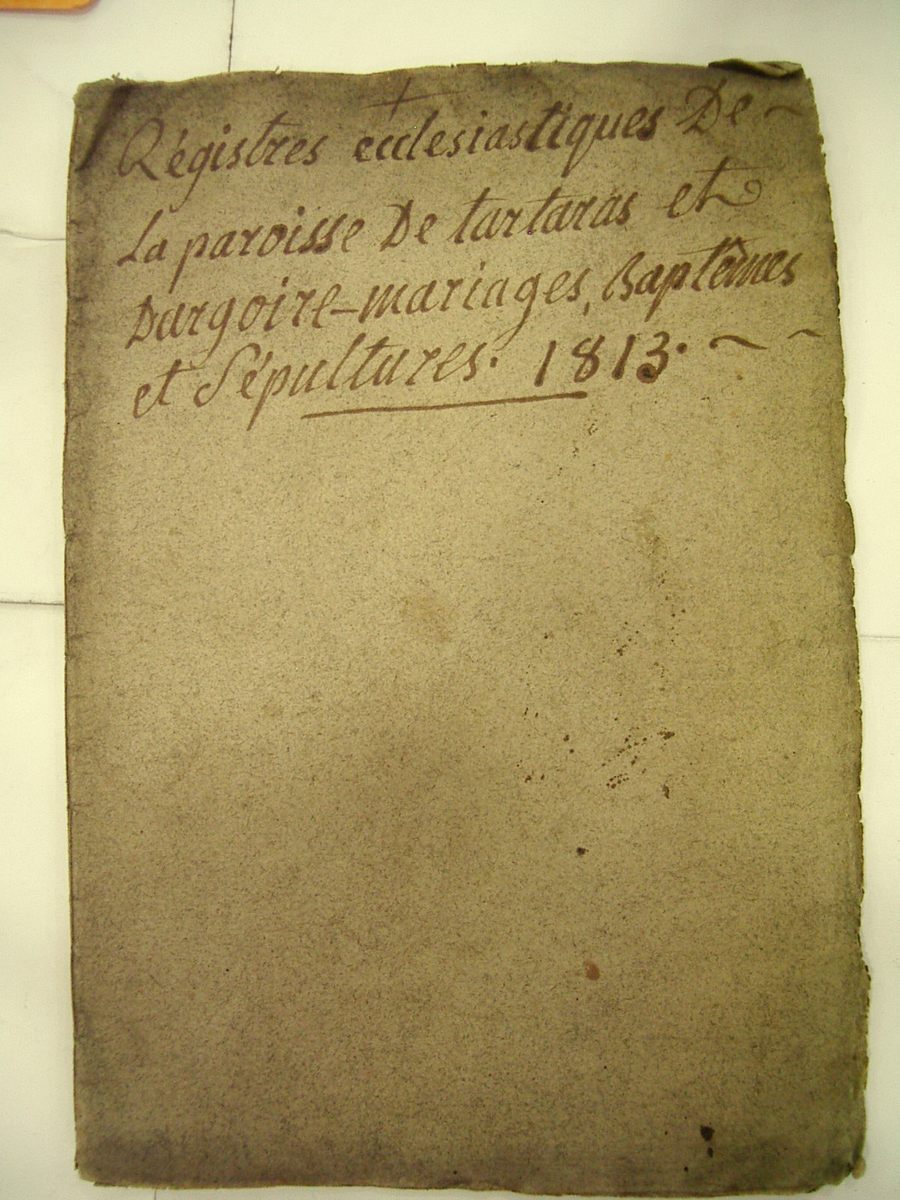 +
Régistres ecclesiastiques De ~
La paroisse De tartaras et
Dargoire - mariages, Baptêmes
et Sépultures. 1813. ~ ~